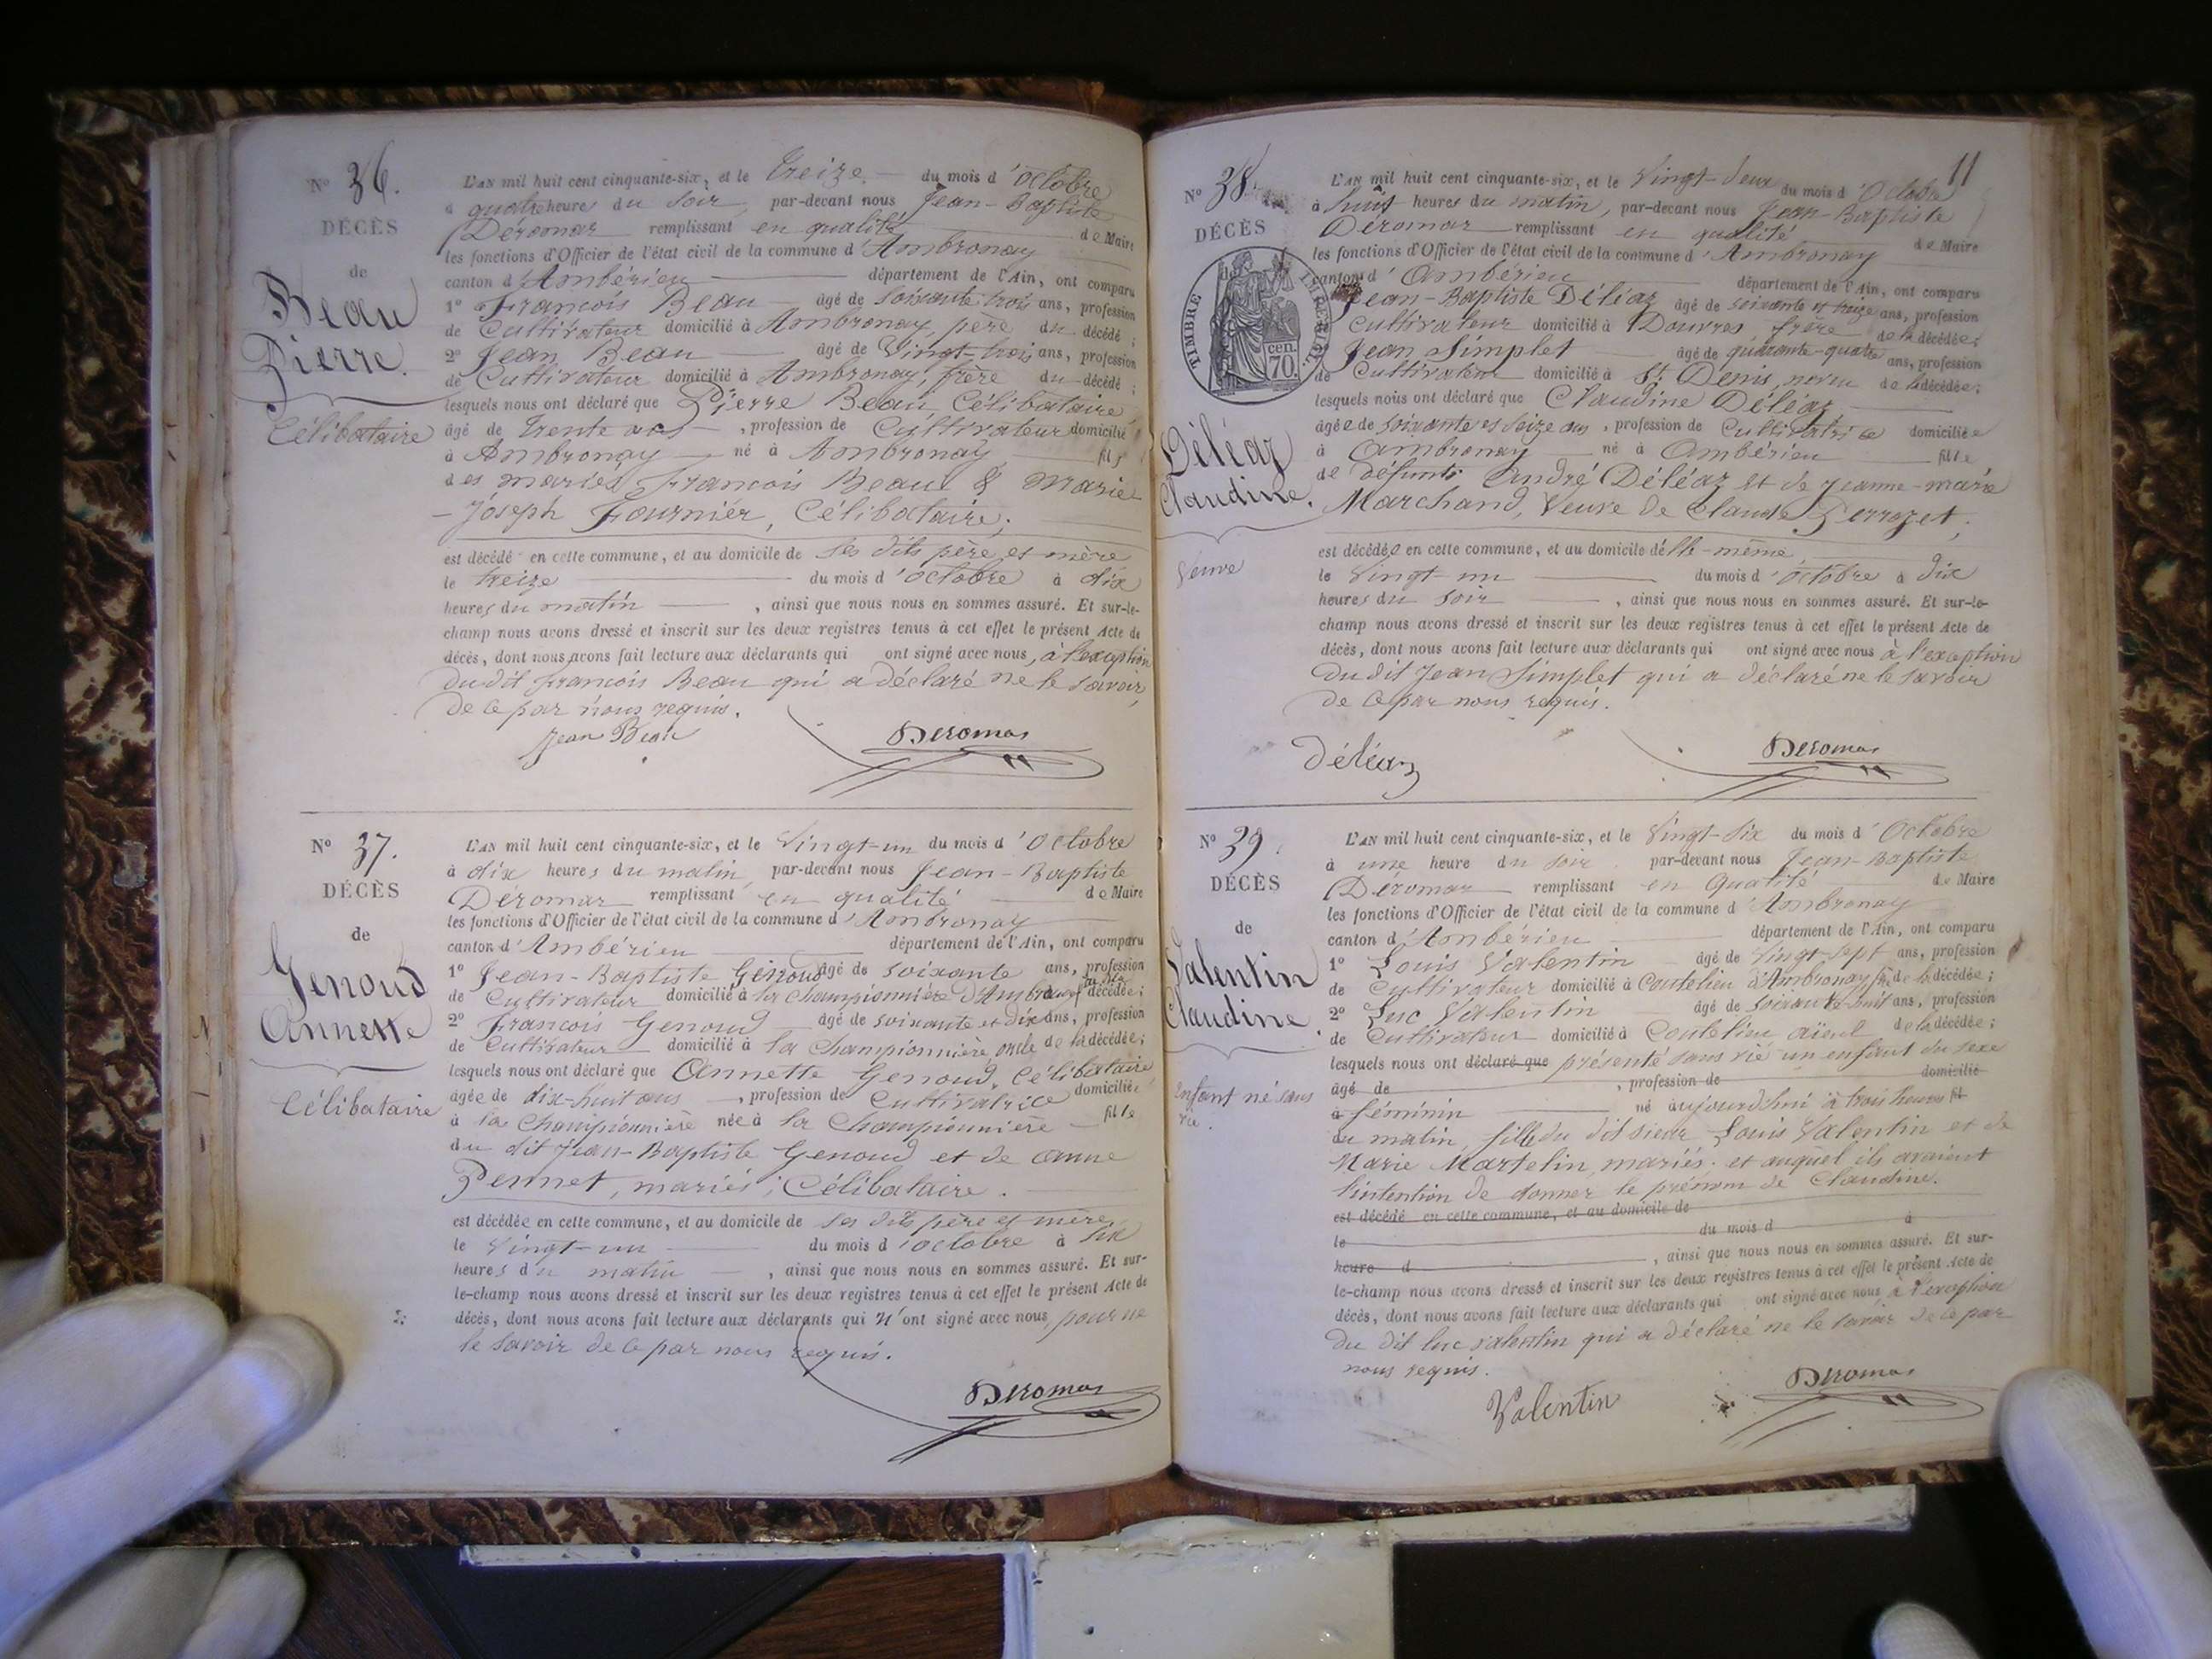 N° 36.
DÉCÈS
de
Beau
Pierre.
Célibataire
L'AN mil huit cent cinquante-six, et le treize du mois d'octobre
à quatre heure du soir, par-devant nous Jean-Baptiste
Déromas remplissant en qualité de Maire
les fonctions d'Officier de l'état civil de la commune d'Ambronay
canton d'Ambérieu département de l'Ain, ont comparu
1° François Beau âgé de soixante trois ans, profession
de Cultivateur domicilié à Ambronay, père du décédé ;
2° Jean Beau âgé de Vingt-trois ans, profession
de Cultivateur domicilié à Ambronay, frère du décédé ;
lesquels nous ont déclaré que Pierre Beau, Célibataire
âgé de trente ans, profession de Cultivateur domicilié
à Ambronay né à Ambronay fils
des mariés François Beau & Marie
-Joseph Fournier, Célibataire,
est décédé en cette commune, et au domicile de ses dits père et mère
le treize du mois d'octobre à dix
heures du matin, ainsi que nous nous en sommes assuré. Et sur-le-
champ nous avons dressé et inscrit sur les deux registres tenus à cet effet le présent Acte de
décès, dont nous avons fait lecture aux déclarants qui ont signé avec nous, à l'exception
du dit François Beau qui a déclaré ne le savoir,
de ce par nous requis.
Jean Beau Deromas
N° 37.
DÉCÈS
de
Genoud
Annette
Célibataire
L'AN mil huit cent cinquante-six, et le Vingt-un du mois d'Octobre
à dix heures du matin par-devant nous Jean-Baptiste
Déromas remplissant en qualité de Maire
les fonctions d'Officier de l'état civil de la commune d'Ambronay
canton d'Ambérieu département de l'Ain, ont comparu
1° Jean-Baptiste Genoud âgé de soixante ans, profession
de Cultivateur domicilié à la Championnière d'Ambronay décédée ;
2° François Genoud âgé de soixante et dix ans, profession
de Cultivateur domicilié à la Championnière, oncle de la décédée ;
lesquels nous ont déclaré que Annette Genoud, Célibataire
âgée de dix-huit ans, profession de Cultivatrice domiciliée
à la Championnière née à la Championnière fille
du dit Jean-Baptiste Genoud et de Anne
Pennet, mariés ; Célibataire.
est décédée en cette commune, et au domicile de ses dits père et mère
le Vingt-un du mois d'octobre à six
heures du matin, ainsi que nous nous en sommes assuré. Et sur-
le-champ nous avons dressé et inscrit sur les deux registres tenus à cet effet le présent Acte de
décès, dont nous avons fait lecture aux déclarants qui n'ont signé avec nous, pour ne
le savoir de ce par nous requis.
Deromas
11
N° 38.
DÉCÈS
de
TIMBRE IMPÉRIAL
cen.
70.
Déléaz
Claudine.
Veuve
L'AN mil huit cent cinquante-six, et le Vingt-deux du mois d'Octobre
à huit heures du matin, par-devant nous Jean-Baptiste
Déromas remplissant en qualité de Maire
les fonctions d'Officier de l'état civil de la commune d'Ambronay
canton d'Ambérieu département de l'Ain, ont comparu
Jean-Baptiste Déléaz âgé de soixante et treize ans, profession
Cultivateur domicilié à Douvres frère de la décédée ;
Jean Simplet âgé de quarante-quatre ans, profession
de Cultivateur domicilié à St Denis, neveu de la décédée ;
lesquels nous ont déclaré que Claudine Déléaz
âgée de soixante et seize ans, profession de Cultivatrice domiciliée
à Ambronay né à Ambérieu fille
de défunts André Déléaz et de Jeanne-Marie
Marchand, Veuve de Claude Perrozet,
est décédée en cette commune, et au domicile d'elle-même
le Vingt-un du mois d'octobre à dix
heures du soir, ainsi que nous nous en sommes assuré. Et sur-le-
champ nous avons dressé et inscrit sur les deux registres tenus à cet effet le présent Acte de
décès, dont nous avons fait lecture aux déclarants qui ont signé avec nous à l'exception
du dit Jean Simplet qui a déclaré ne le savoir
de ce par nous requis.
Déléaz Deromas
N° 39.
DÉCÈS
de
Valentin
Claudine.
Enfant né sans
vie.
L'AN mil huit cent cinquante-six, et le Vingt-six du mois d'Octobre
à une heure du soir par-devant nous Jean-Baptiste
Déromas remplissant en qualité de Maire
les fonctions d'Officier de l'état civil de la commune d'Ambronay
canton d'Ambérieu département de l'Ain, ont comparu
1° Louis Valentin âgé de Vingt-sept ans, profession
de Cultivateur domicilié à Coutelieu d'Ambronay de la décédée ;
2° Luc Valentin âgé de soixante-huit ans, profession
de Cultivateur domicilié à Coutelieu aïeul de la décédée ;
lesquels nous ont déclaré que présenté sans vie un enfant du sexe
âgé de , profession de domicilié
à féminin né aujourd'hui à trois heures fil
du matin, fille du dit sieur Louis Valentin et de
Marie Martelin, mariés. et auquel ils avaient
l'intention de donner le prénom de Claudine.
est décédé en cette commune, et au domicile de
le du mois d à
heure d , ainsi que nous nous en sommes assuré. Et sur-
le-champ nous avons dressé et inscrit sur les deux registres tenus à cet effet le présent Acte de
décès, dont nous avons fait lecture aux déclarants qui ont signé avec nous, à l'exception
du dit Luc Valentin qui a déclaré ne le savoir de ce par
nous requis.
Valentin Deromas